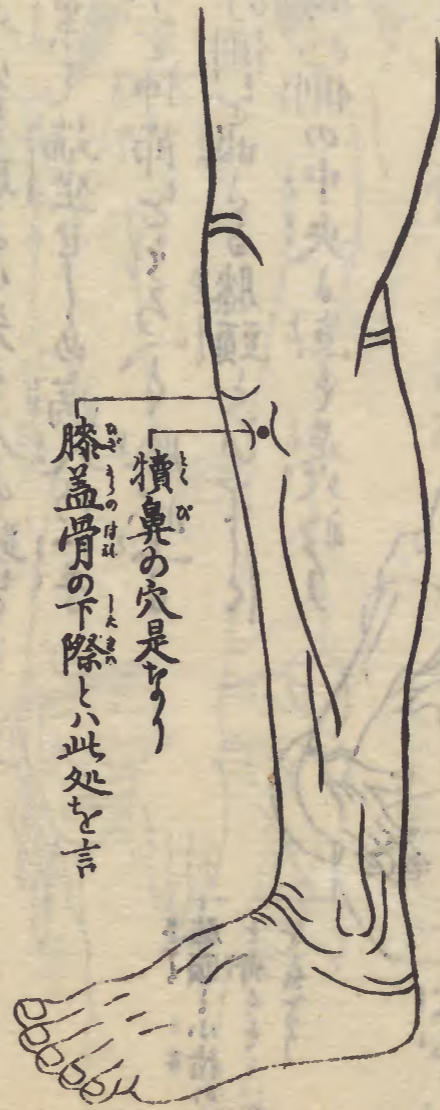 犢鼻の穴是なり
膝盖骨の下際とハ此処を言